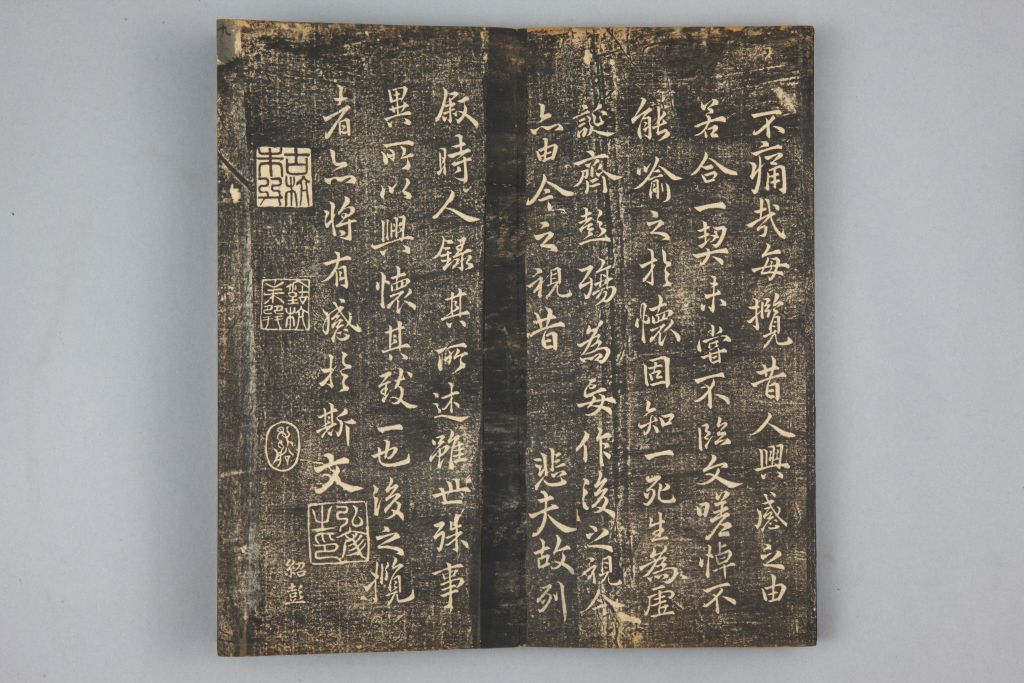 不痛哉每攬昔人興感之由
若合一契未嘗不臨文嗟悼不
能喻之於懷固知一死生為虛
誕齊彭殤為妄作後之視今
亦由今之視昔 悲夫故列
敘時人錄其所述雖世殊事
異所以興懷其致一也後之攬
者亦將有感於斯文
紹彭